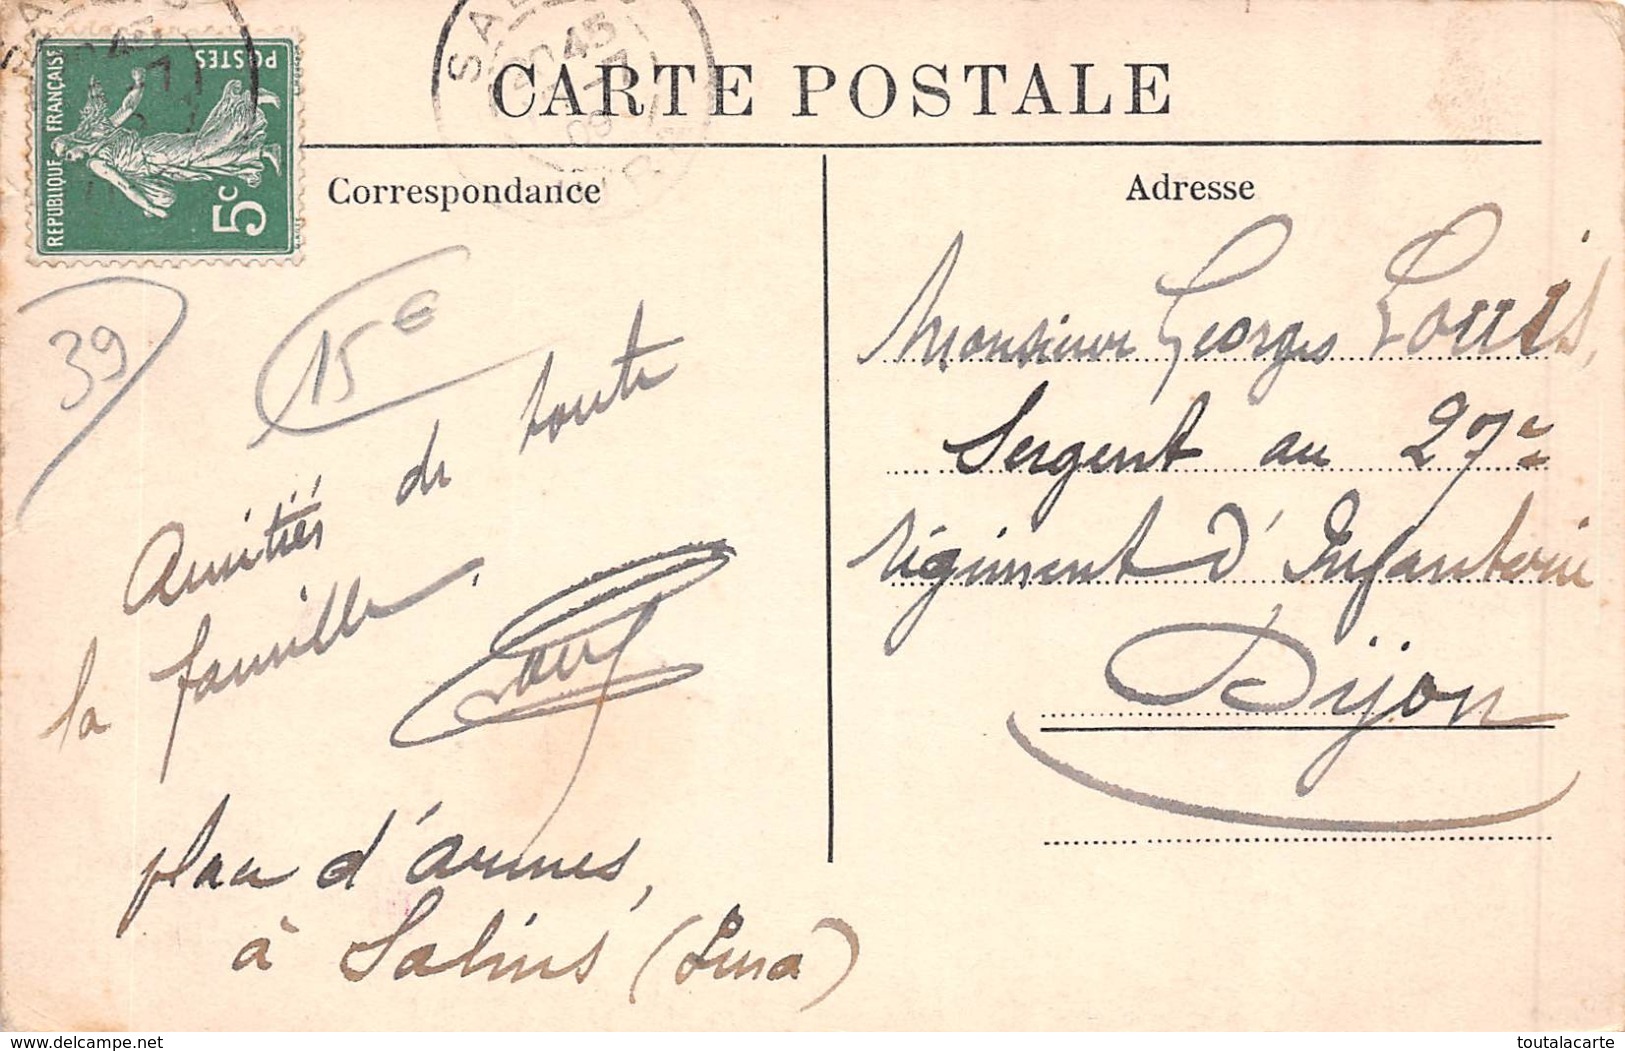 CARTE POSTALE
REPUBLIQUE FRANÇAISE
POSTES
5c
20 45
09
Correspondance
Adresse
39
15€
Amitiés de toute
la famille.
place d'armes,
à Salins (Jura)
Monsieur Georges Louis,
Sergent au 27e
régiment d'Infanterie
Dijon
delcampe.net
toutalacarte